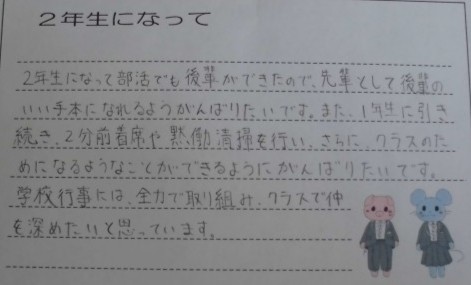 ２年生になって
2年生になって部活でも後輩ができたので、先輩として後輩の
いい手本になれるようがんばりたいです。また、1年生に引き
続き、2分前着席や黙働清掃を行い、さらに、クラスのた
めになるようなことができるようにがんばりたいです。
学校行事には、全力で取り組み、クラスで仲
を深めたいと思っています。